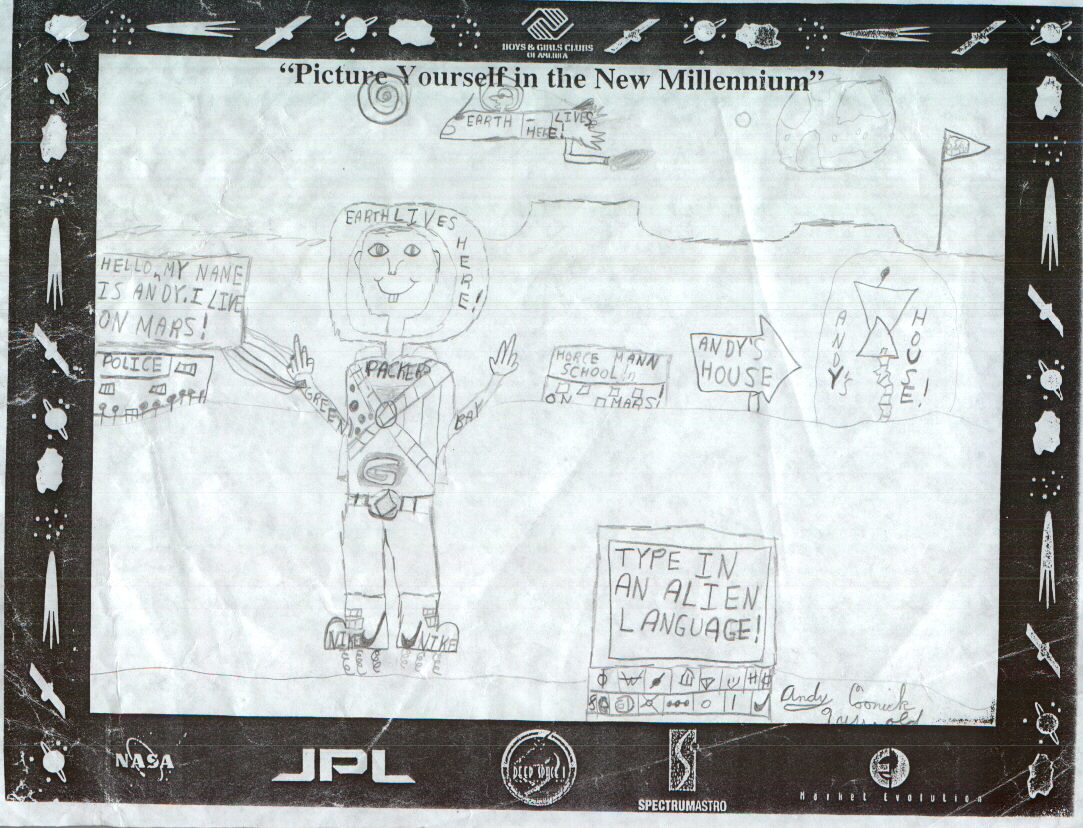 BOYS & GIRLS CLUBS
OF AMERICA
“Picture Yourself in the New Millennium”
EARTH LIVES
HERE!
EARTH LIVES
HERE!
HELLO, MY NAME
IS ANDY. I LIVE
ON MARS!
POLICE
PACKERS
GREEN
BAY
G
NIKE
NIKE
HORCE MANN
SCHOOL
ON MARS!
ANDY'S
HOUSE
ANDY'S
HOUSE!
TYPE IN
AN ALIEN
LANGUAGE!
Andy
yrs. old
NASA
JPL
DEEP SPACE 1
SPECTRUMASTRO
Market Evolution